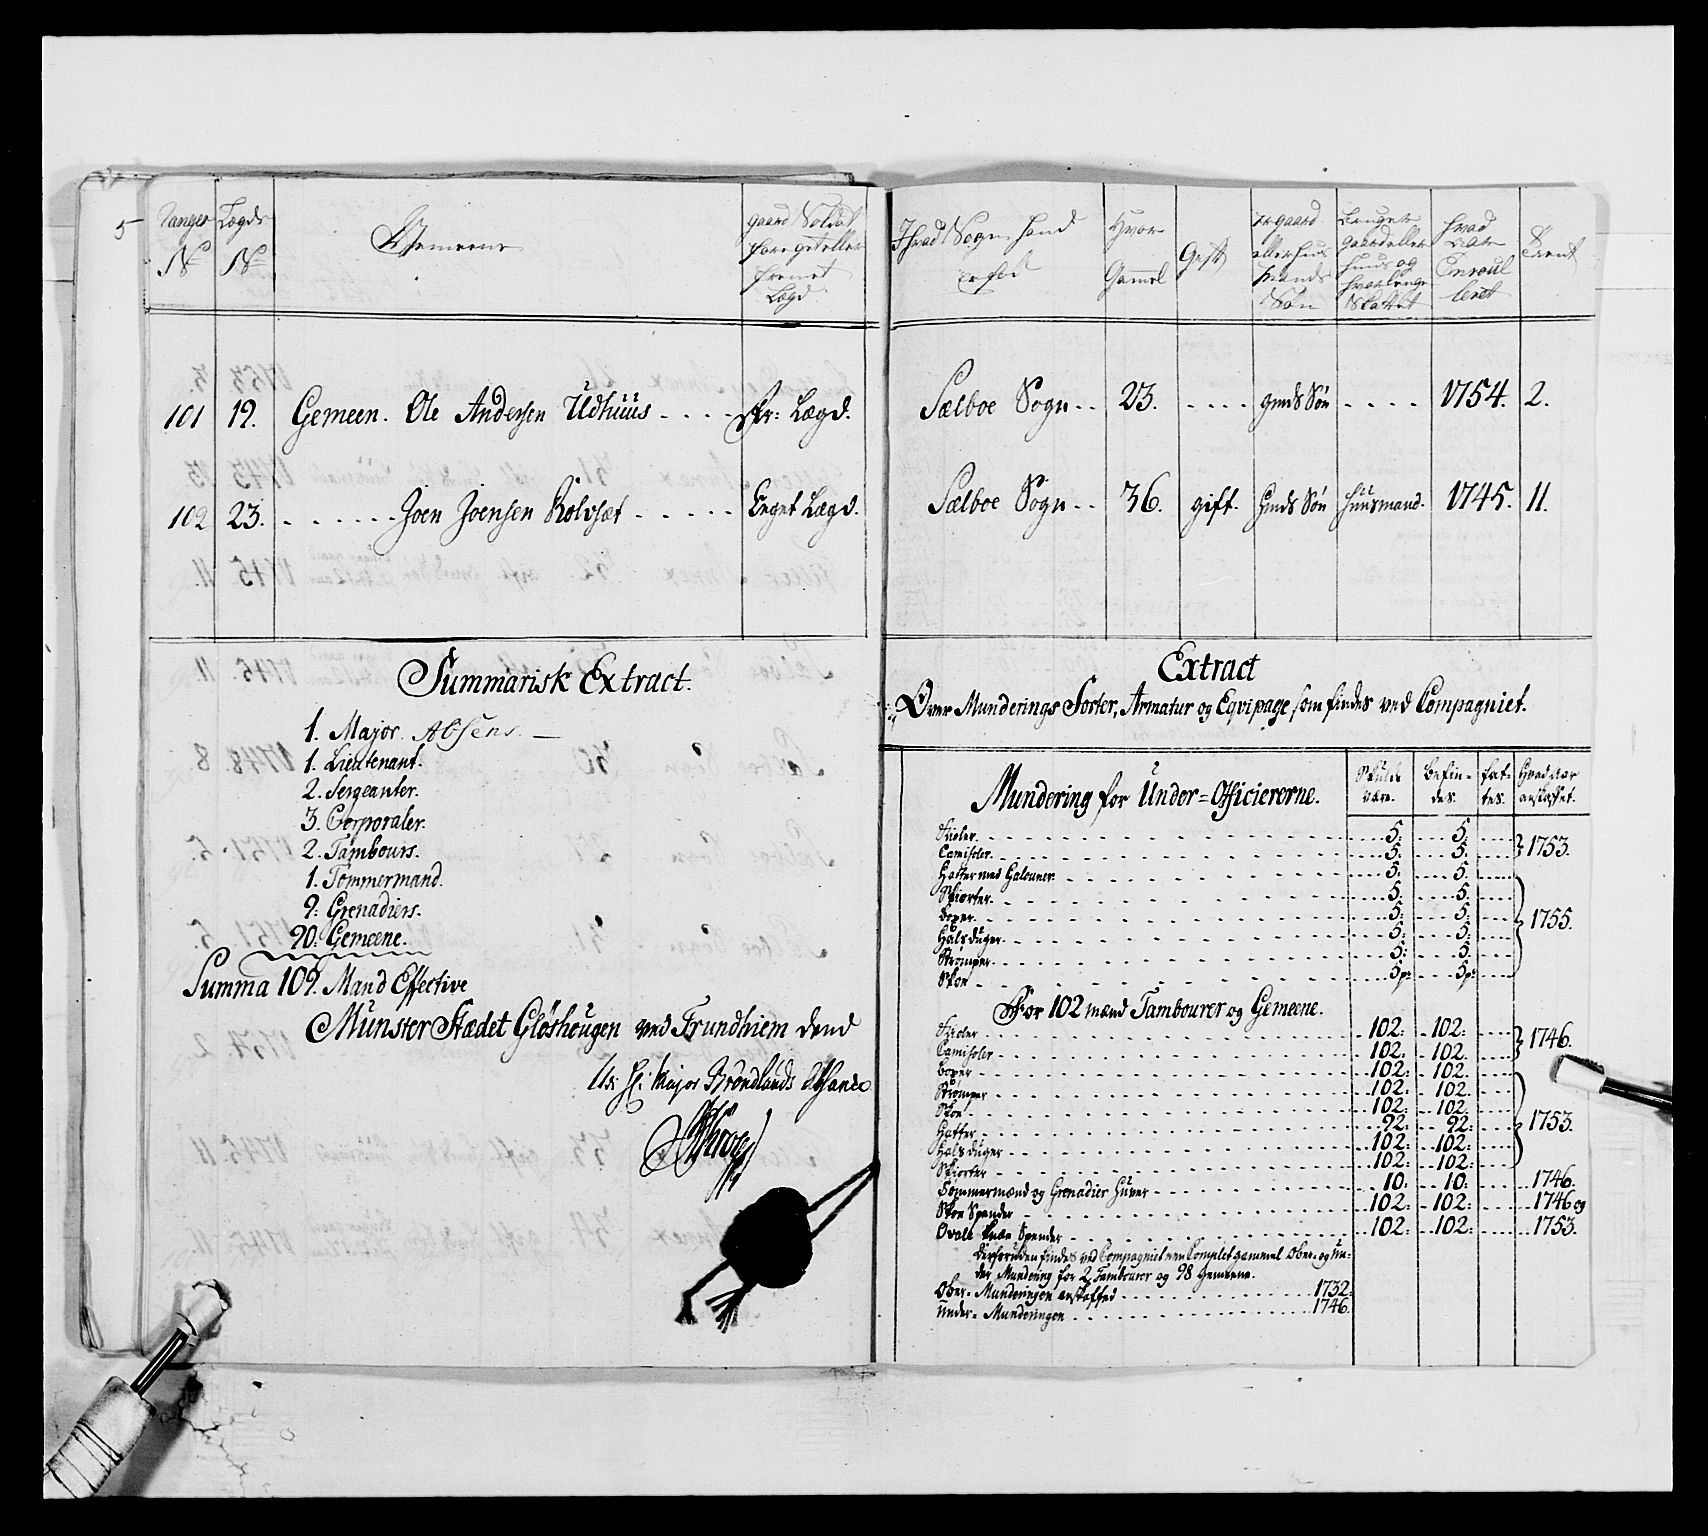 5
Ranger No
Lægds No
Gemeene
gaard Soldat,
fore geteller
fremet
Lægd
I hvad Sogn hand
er fød
Hvor
Gammel
Gift
er gaard
eller huus
mands
Søn
Bruger
gaard eller
huus og
hvor længe
Skattet
hvad
Aar
Enroul
leret
101 19. Gemeen. Ole Andersen Udhuus . . . . fr: Lægd. Sælboe Sogn . . 23. . . . . gmds Søn . . . . 1754. 2.
102 23. . . . . . . Joen Joensen Rolvset . . . . . Eeget Lægd. Sælboe Sogn . . 36. gift. hmds Søn huusmand. 1745. 11.
Summarisk Extract.
1. Major. Absens. —
1. Lieutenant.
2. Sergeanter.
3. Corporaler.
2. Tambours.
1. Tømmermand.
9: Grenadiers.
90: Gemeene.
Summa 109. Mand Effective
Munster Stædet Gløshougen ved Trundhiem dend
Major Brøndlunds
Extract
Over Munderings Sorter, Armatur og Eqvipage, som findes ved Compagniet.
Mundering for Under=Officiererne.
Skulde være.
Befin-
des.
fat-
tes.
Hvad aar
anskaffet.
Kioler 5: 5:
Camisoler 5: 5. 1753.
Hatter med Galouner 5: 5.
Skiorter 5: 5.
boxer 5: 5:
Halsduger 5: 5: 1755.
Strømper 5: 5:
Skoe 5p: 5p:
For 102 mænd Tambourer og Gemeene.
Kioler 102: 102:
Camisoler 102: 102. 1746.
boxer 102: 102.
Strømper 102: 102.
Skoe 102: 102:
Hatter 92: 92: 1753.
Halsduger 102: 102:
Skiorter 102: 102:
Tømmermænd og Grenadier Huver 10: 10: 1746.
Skoe Spender 102: 102: 1746 og
Ovale knæe Spender 102: 102: 1753.
Derforuden findes ved Compagniet een Complet gammel Ober- og un-
der Mundering for 2 Tambourer og 98 Gemeene.
Ober- Munderingen anskaffed 1732:
Under- Munderingen 1746.